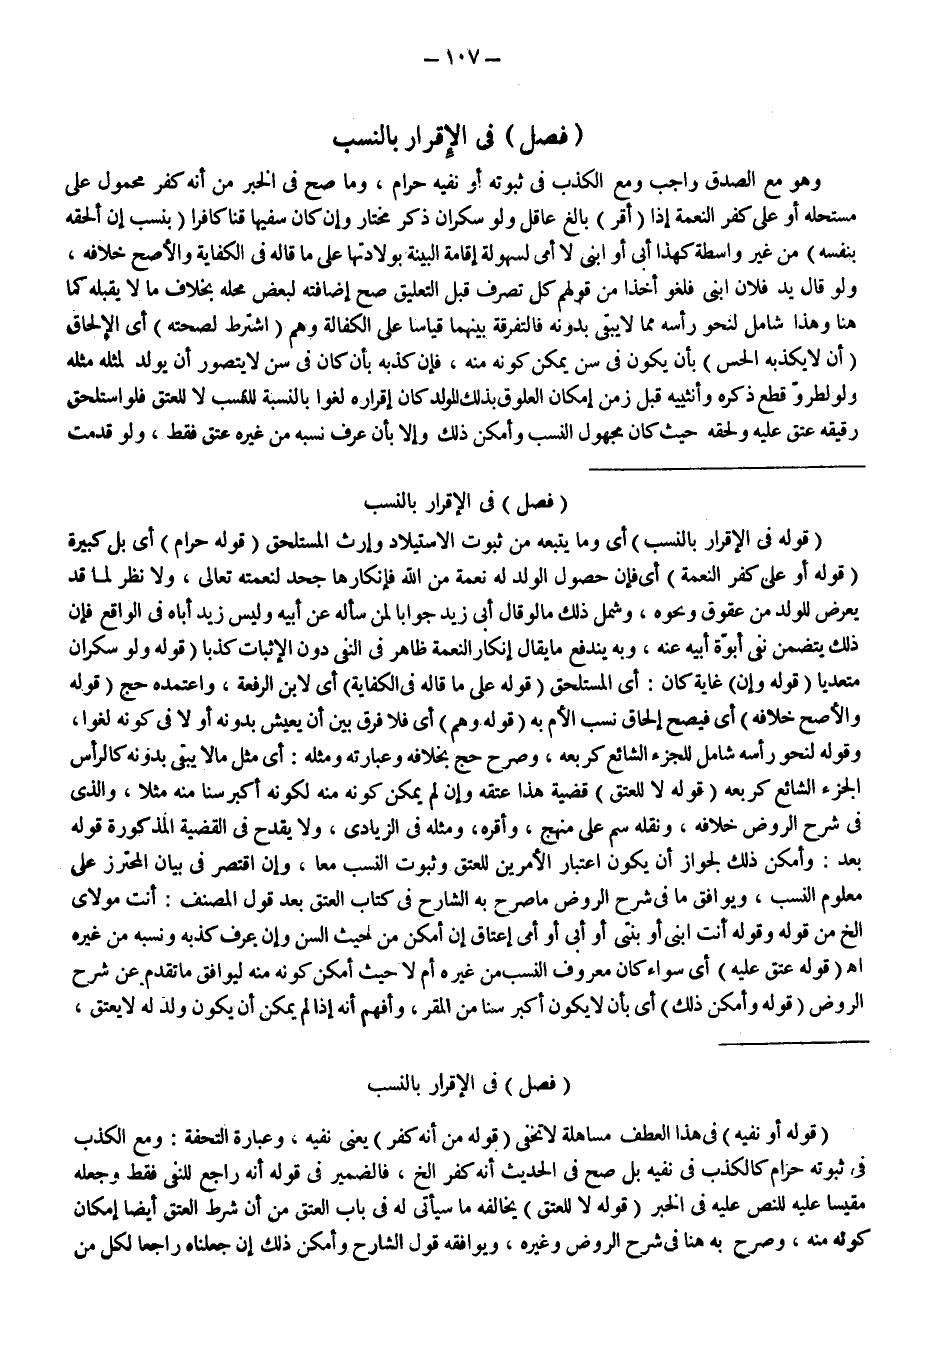 - ١٠٧ -
( فصل ) فى الإقرار بالنسب
وهو مع الصدق راجب ومع الكذب فى ثبوته أو نفيه حرام ، وما صح فى الخبر من أنه كفر محمول على
مستحله أو على كفر النعمة إذا ( أقر ) بالغ عاقل ولو سكران ذكر مختار وإن كان سفيها قنا كافرا ( بنسب إن ألحقه
بنفسه ) من غير واسطة كهذا أبى أو ابنى لا أمى لسهولة إقامة البينة بولادتها على ما قاله فى الكفاية والأصح خلافه ،
ولو قال يد فلان ابنى فلغو أخذا من قولهم كل تصرف قبل التعليق صح إضافته لبعض محله بخلاف ما لا يقبله كما
هنا وهذا شامل لنحو رأسه مما لايبقى بدونه فالتفرقة بينهما قياسا على الكفالة وهم ( اشترط لصحته ) أى الإلحاق
( أن لايكذبه الحس ) بأن يكون فى سن يمكن كونه منه ، فإن كذبه بأن كان فى سن لايتصور أن يولد لمثله مثله
ولو لطروّ قطع ذكره وأنثييه قبل زمن إمكان العلوق بذلك الولد كان إقراره لغوا بالنسبة للنسب لا للعتق فلو استلحق
رقيقه عتق عليه ولحقه حيث كان مجهول النسب وأمكن ذلك وإلا بأن عرف نسبه من غيره عتق فقط ، ولو قدمت
( فصل ) فى الإقرار بالنسب
( قوله فى الإقرار بالنسب ) أى وما يتبعه من ثبوت الاستيلاد وإرث المستلحق ( قوله حرام ) أى بل كبيرة
( قوله أو على كفر النعمة ) أى فإن حصول الولد له نعمة من الله فإنكارها جحد لنعمته تعالى ، ولا نظر لما قد
يعرض للولد من عقوق ونحوه ، وشمل ذلك مالو قال أبى زيد جوابا لمن سأله عن أبيه وليس زيد أباه فى الواقع فإن
ذلك يتضمن نفى أبوّة أبيه عنه ، وبه يندفع مايقال إنكار النعمة ظاهر فى النفى دون الإثبات كذبا ( قوله ولو سكران
متعديا ( قوله وإن) غاية كان : أى المستلحق ( قوله على ما قاله فى الكفاية) أى لابن الرفعة ، واعتمده حج ( قوله
والأصح خلافه ) أى فيصح إلحاق نسب الأم به ( قوله وهم ) أى فلا فرق بين أن يعيش بدونه أو لا فى كونه لغوا ،
وقوله لنحو رأسه شامل للجزء الشائع كربعه ، وصرح حج بخلافه وعبارته ومثله : أى مثل مالا يبقى بدونه كالرأس
الجزء الشائع كربعه ( قوله لا للعتق ) قضية هذا عتقه وإن لم يمكن كونه منه لكونه أكبر سنا منه مثلا ، والذى
فى شرح الروض خلافه ، ونقله سم على منهج ، وأقره، ومثله فى الزيادى ، ولا يقدح فى القضية المذكورة قوله
بعد : وأمكن ذلك لجواز أن يكون اعتبار الأمرين للعتق وثبوت النسب معا ، وإن اقتصر فى بيان المحترز على
معلوم النسب ، ويوافق ما فى شرح الروض ماصرح به الشارح فى كتاب العتق بعد قول المصنف : أنت مولاى
الخ من قوله وقوله أنت ابنى أو بنتى أو أبى أو أمى إعتاق إن أمكن من حيث السن وإن عرف كذبه ونسبه من غيره
اه ( قوله عتق عليه ) أى سواء كان معروف النسب من غيره أم لا حيث أمكن كونه منه ليوافق ماتقدم عن شرح
الروض ( قوله وأمكن ذلك ) أى بأن لايكون أكبر سنا من المقر ، وأفهم أنه إذا لم يمكن أن يكون ولد له لايعتق ،
( فصل ) فى الإقرار بالنسب
( قوله أو نفيه ) فى هذا العطف مساهلة لاتخفى ( قوله من أنه كفر ) يعنى نفيه ، وعبارة التحفة : ومع الكذب
فى ثبوته حرام كالكذب فى نفيه بل صح فى الحديث أنه كفر الخ ، فالضمير فى قوله أنه راجع للنفى فقط وجعله
مقيسا عليه للنص عليه فى الخبر ( قوله لا للعتق ) يخالفه ما سيأتى له فى باب العتق من أن شرط العتق أيضا إمكان
كونه منه ، وصرح به هنا فى شرح الروض وغيره ، ويوافقه قول الشارح وأمكن ذلك إن جعلناه راجعا لكل من